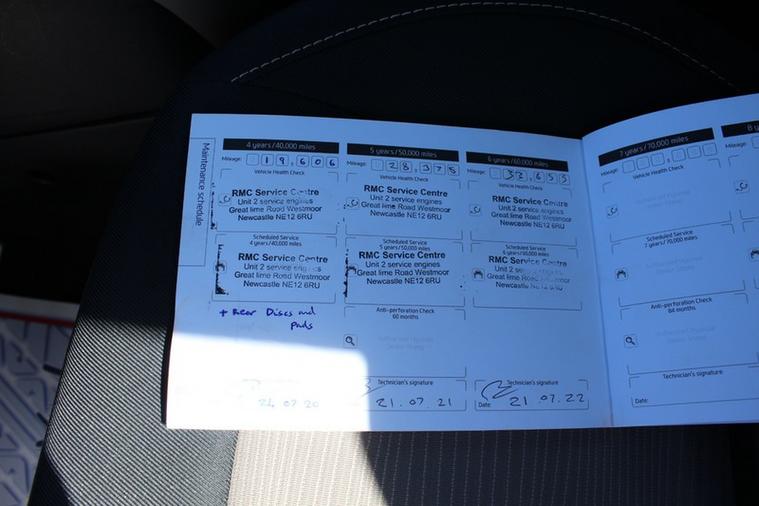 Maintenance schedule
4 years/40,000 miles
Mileage: 19,606
Vehicle Health Check
RMC Service Centre
Unit 2 service engines
Great lime Road Westmoor
Newcastle NE12 6RU
Scheduled Service
4 years/40,000 miles
RMC Service Centre
Unit 2 service engines
Great lime Road Westmoor
Newcastle NE12 6RU
+ Rear Discs and
Pads
21 07 20
5 years/50,000 miles
Mileage: 28,378
Vehicle Health Check
RMC Service Centre
Unit 2 service engines
Great lime Road Westmoor
Newcastle NE12 6RU
Scheduled Service
5 years/50,000 miles
RMC Service Centre
Unit 2 service engines
Great lime Road Westmoor
Newcastle NE12 6RU
Anti-perforation Check
60 months
Technician's signature
21.07.21
6 years/60,000 miles
Mileage: 32,655
Vehicle Health Check
RMC Service Centre
Unit 2 service engines
Great lime Road Westmoor
Newcastle NE12 6RU
Scheduled Service
6 years/60,000 miles
RMC Service Centre
Unit 2 service engines
Great lime Road Westmoor
Newcastle NE12 6RU
Technician's signature
Date: 21.07.22
7 years/70,000 miles
Mileage:
Vehicle Health Check
Scheduled Service
7 years/70,000 miles
Anti-perforation Check
84 months
Technician's signature
Date:
8